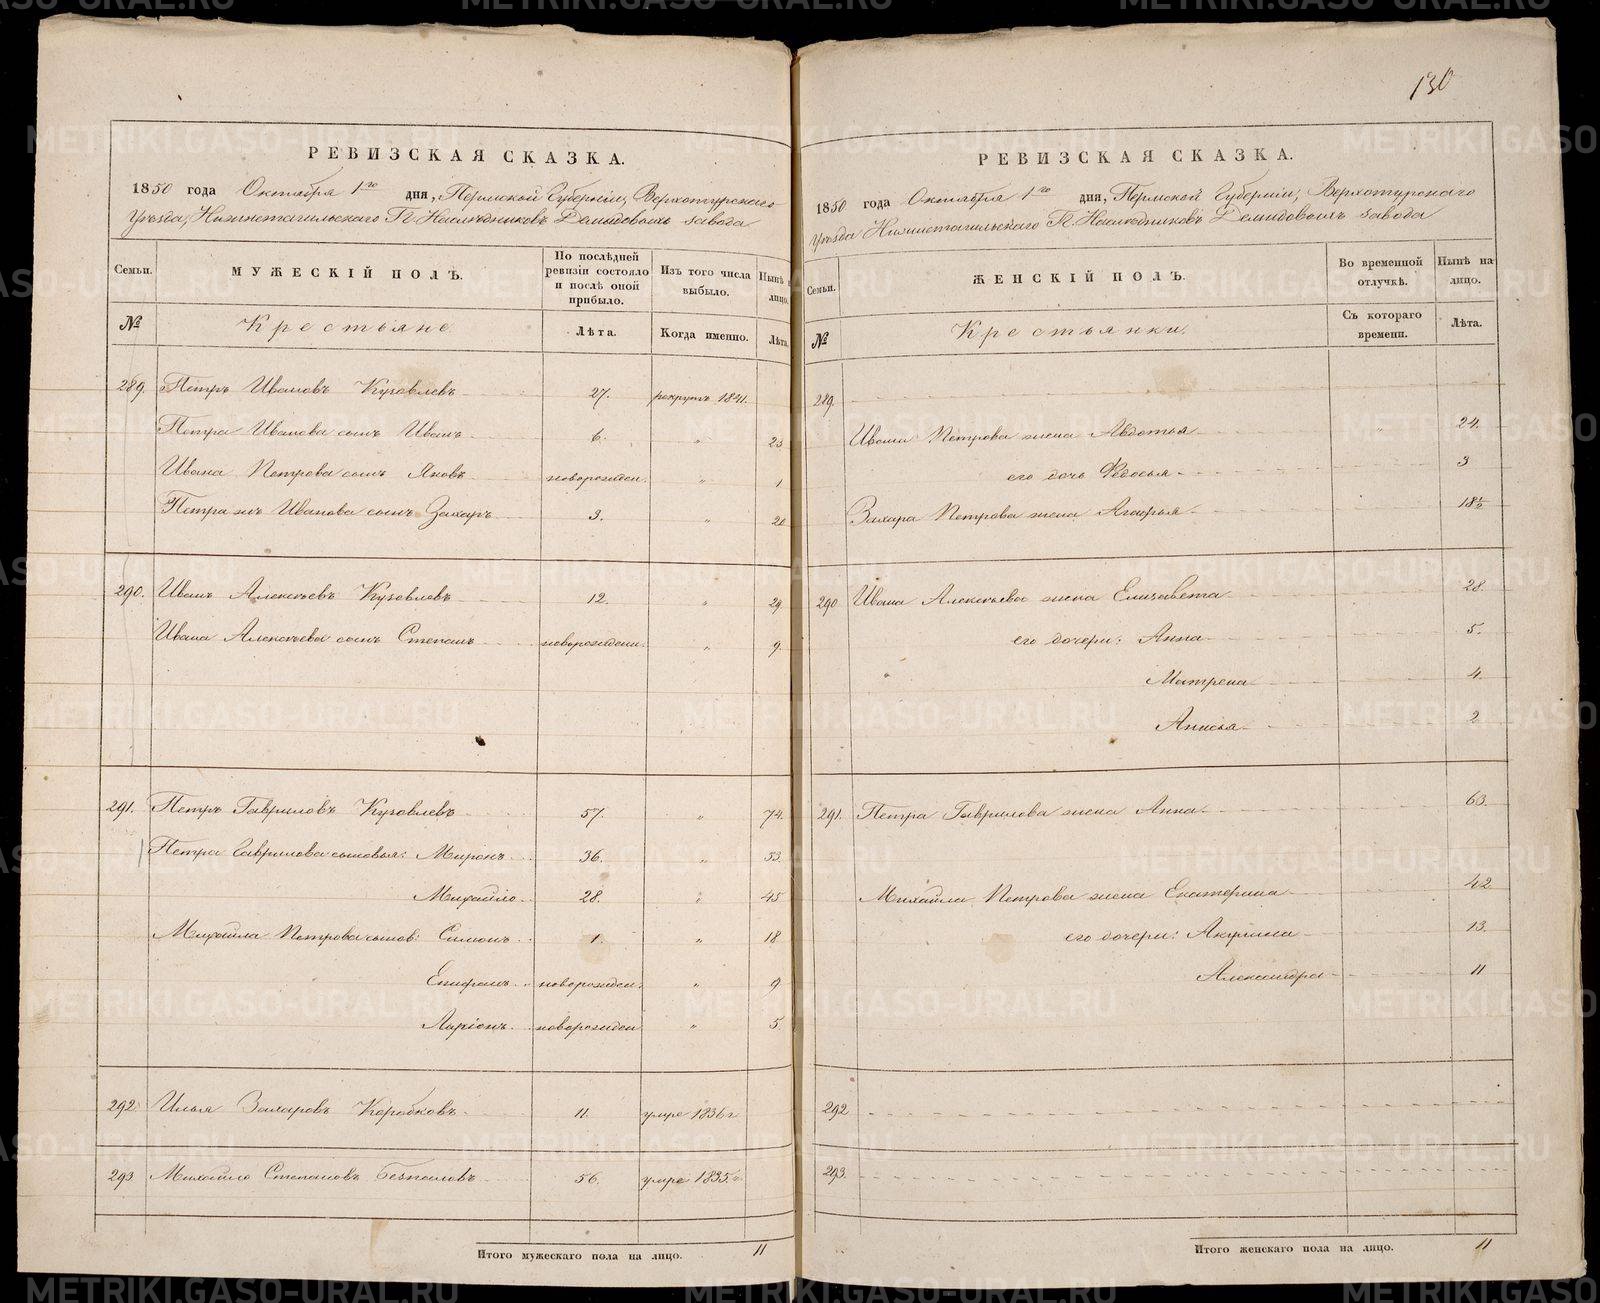 130
РЕВИЗСКАЯ СКАЗКА.
1850 года Октября 1го дня, Пермской Губерніи, Верхотурскаго
Уѣзда, Нижнетагильскаго Г. Наслѣдниковъ Демидовыхъ завода
Семьи.
МУЖЕСКІЙ ПОЛЪ.
По послѣдней ревизіи состояло и послѣ оной прибыло.
Изъ того числа выбыло.
Нынѣ лицо.
№
Крестьяне
Лѣта.
Когда именно.
Лѣта.
289. Петръ Ивановъ Кузовлевъ 27. рекрутъ 1841.
Петра Иванова сынъ Иванъ 6. " 23
Ивана Петрова сынъ Яковъ новорожден. " 1
Петра жъ Иванова сынъ Захаръ 3. " 20
290. Иванъ Алексѣевъ Кузовлевъ 12. " 29.
Ивана Алексѣева сынъ Степанъ новорожден. " 9.
291. Петръ Гавриловъ Кузовлевъ 57. " 74.
Петра Гаврилова сыновья: Миронъ 36. " 53.
Михайло 28. " 45
Михайла Петрова сынов: Симонъ 1. " 18
Епифанъ новорожден. " 9
Ларіонъ новорожден " 5.
292. Илья Захаровъ Коробковъ 11. умре 1836 г
293 Михайло Степановъ 56. умре 1835 г
Итого мужескаго пола на лицо. 11
РЕВИЗСКАЯ СКАЗКА.
1850 года Октября 1го дня, Пермской Губерніи, Верхотурскаго
Уѣзда Нижнетагильскаго Г. Наслѣдниковъ Демидовыхъ завода
Семьи.
ЖЕНСКІЙ ПОЛЪ.
Во временной отлучкѣ.
Нынѣ на лицо.
№
Крестьянки.
Съ котораго времени.
Лѣта.
289.
Ивана Петрова жена Авдотья " 24.
его дочь Федосья 3
Захара Петрова жена Агафья 18½
290 Ивана Алексѣева жена Елизавета 28.
его дочери: Анна 5.
Матрена 4.
Анисья 2
291. Петра Гаврилова жена Анна 63.
Михайла Петрова жена Екатерина 42
его дочери: Акулина 13.
Александра 11
292
293.
Итого женскаго пола на лицо. 11
METRIKI.GASO-URAL.RU